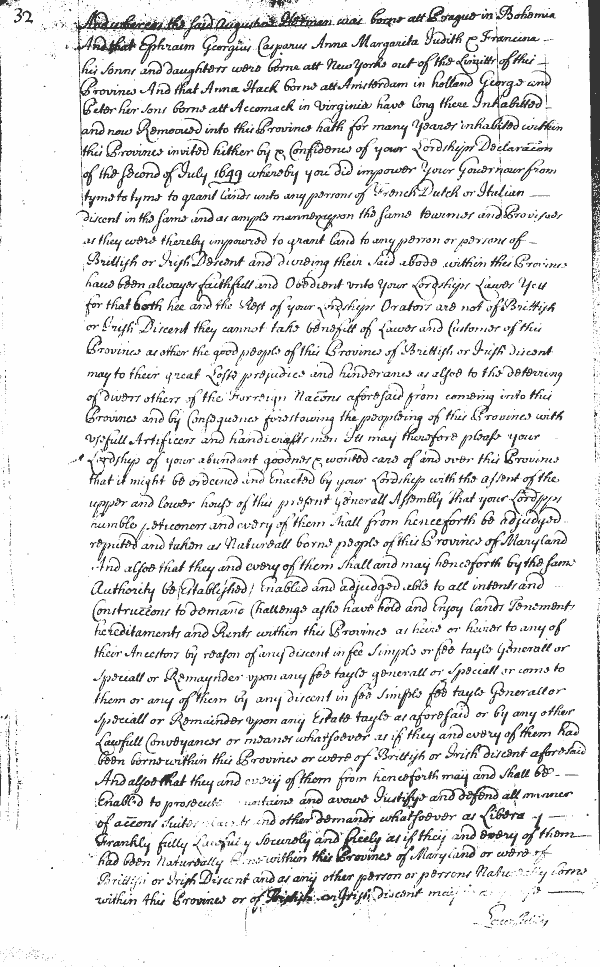 32
And whereas the said Augustine Herman was borne att Prague in Bohemia
And that Ephraim Georgius Casparus Anna Margarita Judith & Francina
his Sonns and daughters were borne att New Yorke out of the Limitts of this
Province And that Anna Hack borne att Amsterdam in holland George and
Peter her Sons borne att Accomack in Virginia have long there Inhabited
and now Remooved into this Province hath for many Yeares inhabited within
this Province invited hither by & Confidence of your Lordships Declaracon
of the Second of July 1649 whereby you did impower Your Governour from
tyme to tyme to grant lands unto any persons of French Dutch or Italian
discent in the same and as ample manner upon the same tearmes and Provisoes
as they were thereby impowred to grant land to any person or persons of
Brittish or Irish Descent and dureing their said abode within this Province
have been alwayes faithfull and Obedient unto Your Lordships Lawes Yet
for that both hee and the Rest of your Lordships Orators are not of Brittish
or Irish Discent they cannot take benefitt of Lawes and Customes of this
Province as other the good people of this Province of Brittish or Irish discent
may to their great Losse prejudice and hinderance as alsoe to the deterring
of divers others of the Forreign Nacons aforesaid from comeing into this
Province and by Consequence forestowing the peopleing of this Province with
usefull Artificers and handicraftsmen It may therefore please Your
Lordship of your abundant goodnes & wonted care of and over this Province
that it might be ordeined and Enacted by your Lordship with the assent of the
upper and lower house of this present generall Assembly that your Lordpps
humble peticoners and every of them shall from henceforth be adjudged
reputed and taken as Natureall borne people of this Province of Maryland
And alsoe that they and every of them shall and may henceforth by the same
Authority be Established Enabled and adjudged able to all intents and
Construccons to demand Challenge aske have hold and Enjoy lands Tenements
hereditaments and Rents within this Province as heire or heires to any of
their Ancestors by reason of any discent in fee Simple or fee tayle Generall or
Speciall or Remaynder upon any fee tayle generall or Speciall or come to
them or any of them by any discent in fee Simple fee tayle Generall or
Speciall or Remainder upon any Estate tayle as aforesaid or by any other
Lawfull Conveyances or meanes whatsoever as if they and every of them had
been borne within this Province or were of Brittish or Irish discent aforesaid
And alsoe that they and every of them from henceforth may and shall be
Enabled to prosecute and avowe Justifye and defend all manner
of accons suites and other demands whatsoever as Libera y
Frankly fully Lawfully Securely and freely as if they and every of them
had been Natureally within this Province of Maryland or were of
Brittish or Irish Discent and as any other person or persons Naturally borne
within this Province or of Brittish or Irish discent may